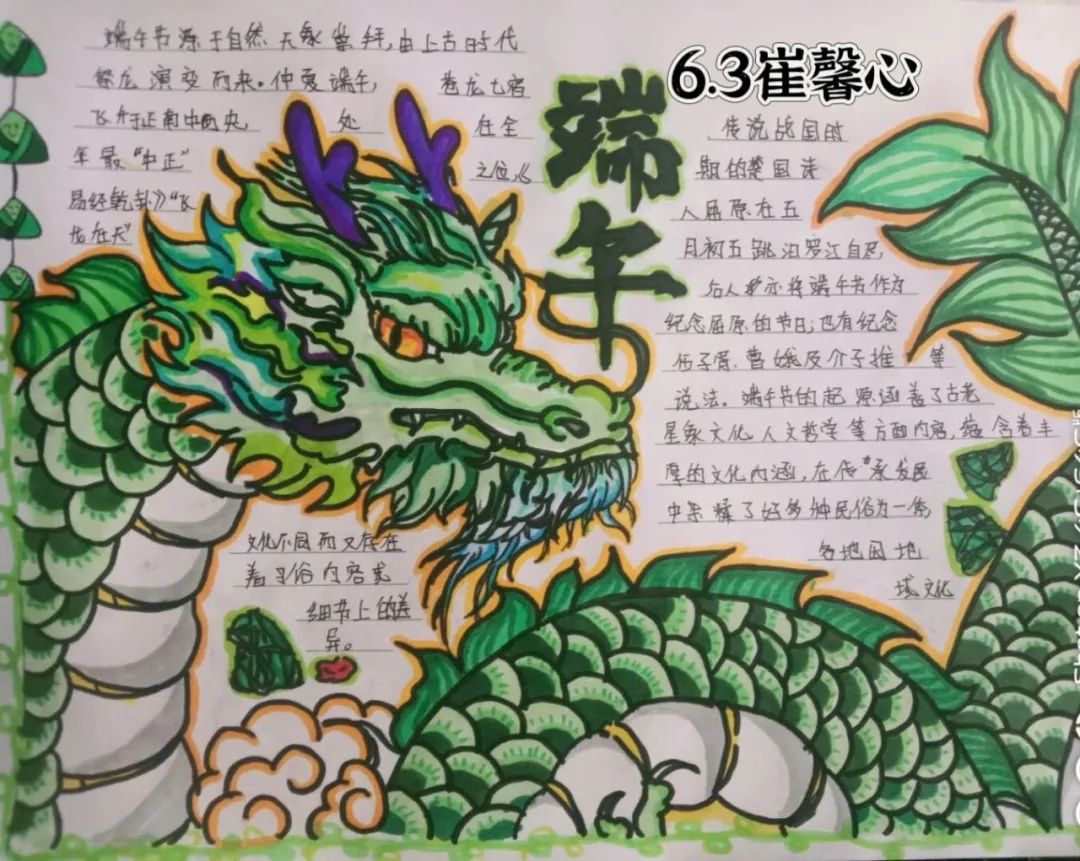 6.3崔馨心
端午
端午节源于自然天象崇拜,由上古时代
祭龙演变而来。仲夏端午, 苍龙七宿
飞升于正南中央, 处 在全
年最“中正” 之位,《
易经乾卦》“飞
龙在天”
传说战国时
期的楚国诗
人屈原在五
月初五跳汨罗江自尽,
后人亦将端午节作为
纪念屈原的节日;也有纪念
伍子胥、曹娥及介子推 等
说法。端午节的起源涵盖了古老
星象文化、人文哲学等方面内容,蕴含着丰
厚的文化内涵,在传承发展
中杂糅了好多种民俗为一体,
各地因地
域文化
文化不同而又存在
着习俗内容或
细节上的差
异。